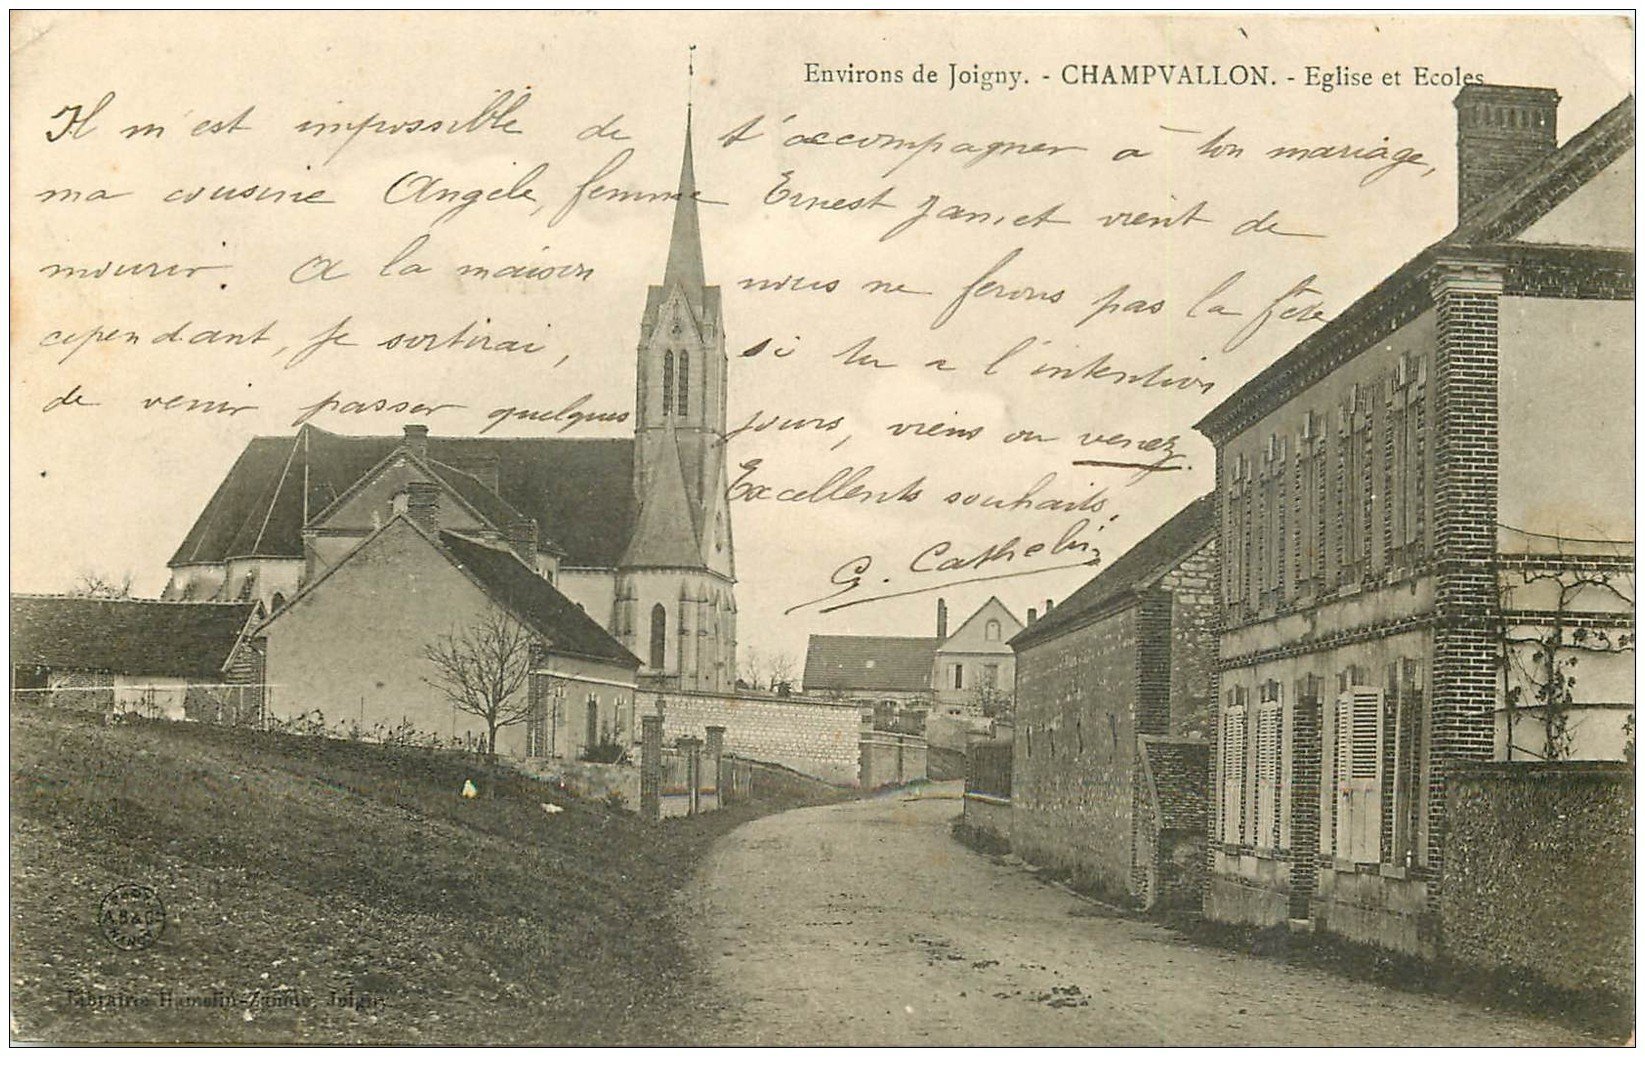 Environs de Joigny. - CHAMPVALLON. - Eglise et Ecoles
Il m'est impossible de t'accompagner à ton mariage,
ma cousine Angèle, femme Ernest Janiet vient de
mourir. A la maison nous ne ferons pas la fête
cependant, je sortirai, si tu a l'intention
de venir passer quelques jours, viens ou venez.
Excellents souhaits.
G. Cathelin
Librairie Hamelin- Joigny